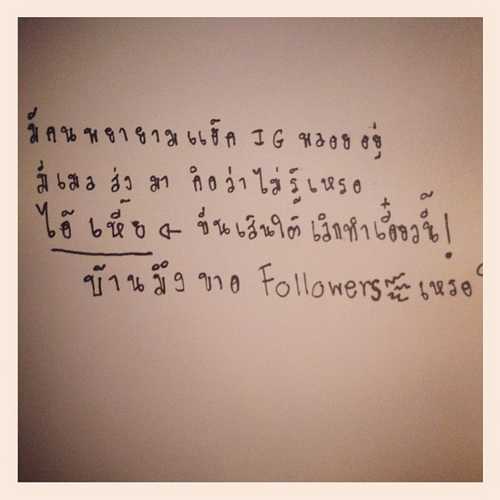 มีคนพยายามแฮ็ค IG พลอยอยู่
มีเมลส่งมา คิดว่าไม่รู้เหรอ
ไอ้เหี้ย ← ขีดเส้นใต้ เลิกทำเดี๋ยวนี้!
บ้านมึงขาด Followers เหรอ